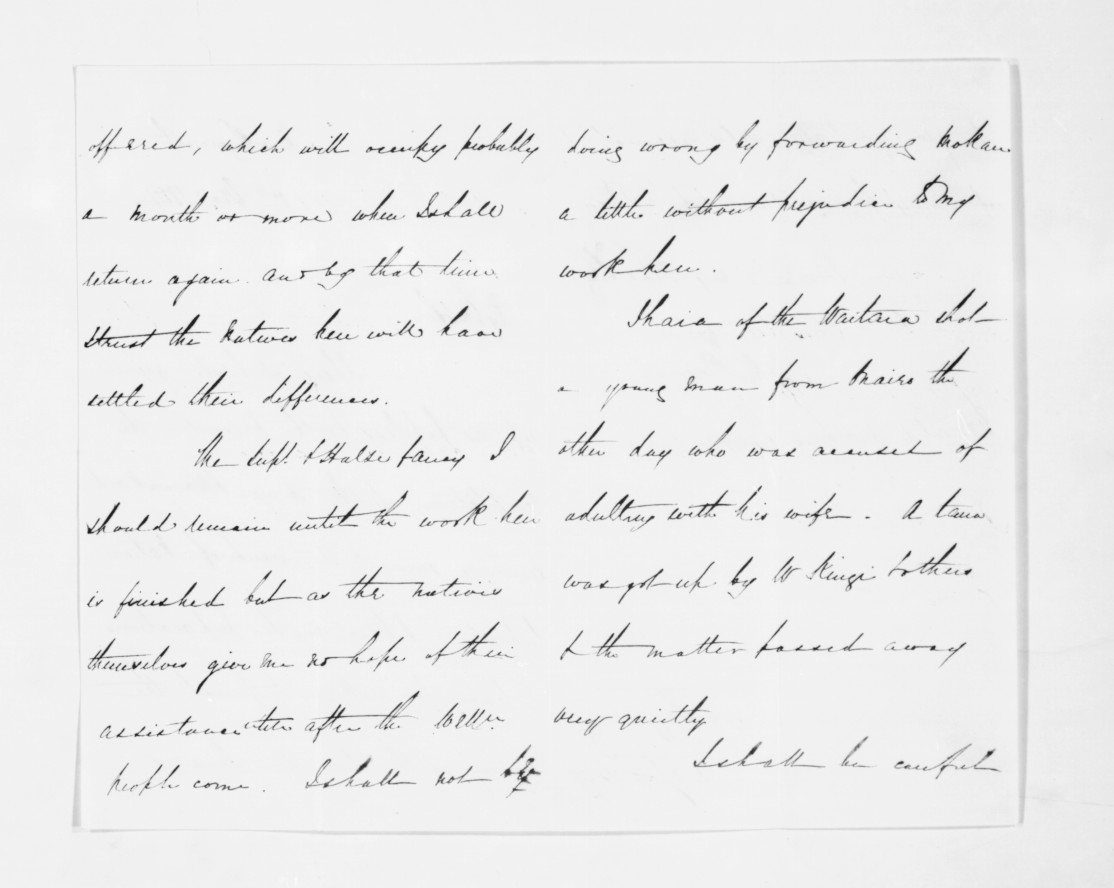 offered, which will occupy probably
a month or more when I shall
return again and by that time
I trust the Natives here will have
settled their differences.
The Supt. & Halse fancy I
should remain until the work here
is finished but as the natives
themselves give me no hope of their
assistance till after the
people come. I shall not be
doing wrong by forwarding Mokau
a little without prejudice to my
work here.
Ihaia of the Waitara shot
a young man from the
other day who was accused of
adultry with his wife. A taua
was got up by W Kingi & others
& the matter passed away
very quietly
I shall be careful